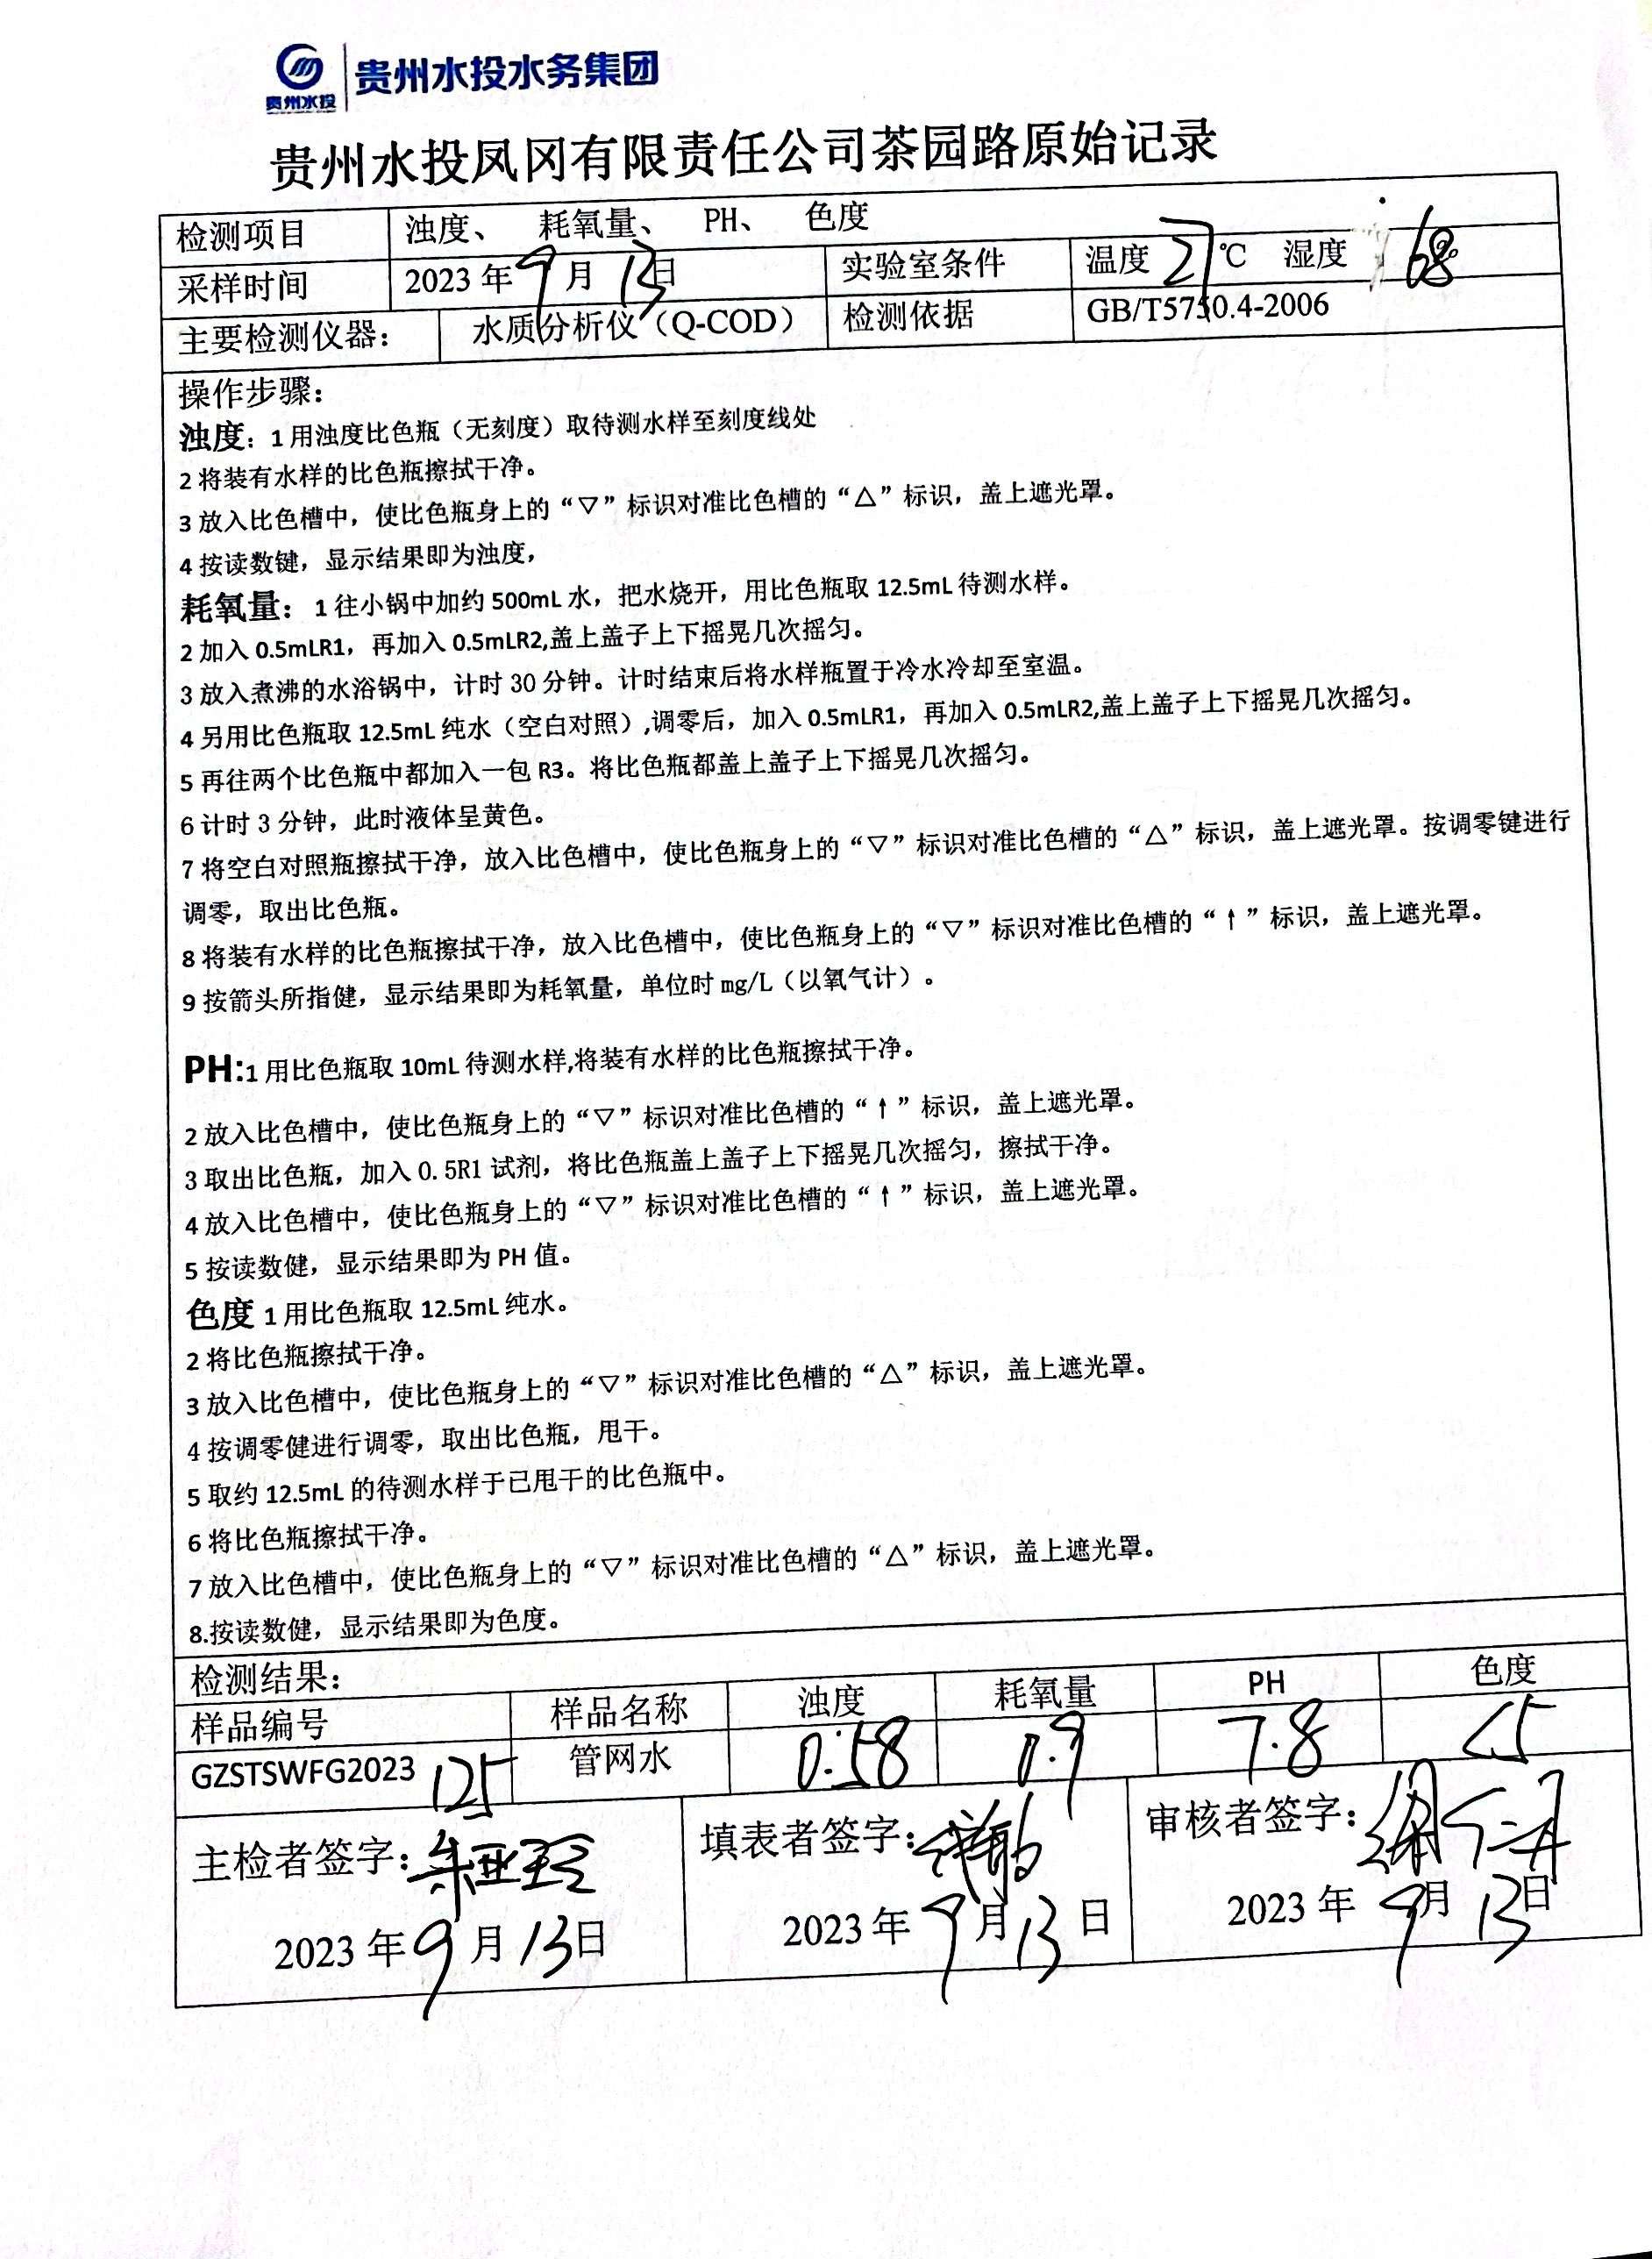 贵州水投
贵州水投水务集团
贵州水投凤冈有限责任公司茶园路原始记录
检测项目 浊度、 耗氧量、 PH、 色度
采样时间 2023年9月13日 实验室条件 温度27℃ 湿度68%
主要检测仪器: 水质分析仪(Q-COD) 检测依据 GB/T5750.4-2006
操作步骤:
浊度:1用浊度比色瓶(无刻度)取待测水样至刻度线处
2将装有水样的比色瓶擦拭干净。
3放入比色槽中,使比色瓶身上的“▽”标识对准比色槽的“△”标识,盖上遮光罩。
4按读数键,显示结果即为浊度,
耗氧量:1往小锅中加约500mL水,把水烧开,用比色瓶取12.5mL待测水样。
2加入0.5mLR1,再加入0.5mLR2,盖上盖子上下摇晃几次摇匀。
3放入煮沸的水浴锅中,计时30分钟。计时结束后将水样瓶置于冷水冷却至室温。
4另用比色瓶取12.5mL纯水(空白对照),调零后,加入0.5mLR1,再加入0.5mLR2,盖上盖子上下摇晃几次摇匀。
5再往两个比色瓶中都加入一包R3。将比色瓶都盖上盖子上下摇晃几次摇匀。
6计时3分钟,此时液体呈黄色。
7将空白对照瓶擦拭干净,放入比色槽中,使比色瓶身上的“▽”标识对准比色槽的“△”标识,盖上遮光罩。按调零键进行
调零,取出比色瓶。
8将装有水样的比色瓶擦拭干净,放入比色槽中,使比色瓶身上的“▽”标识对准比色槽的“↑”标识,盖上遮光罩。
9按箭头所指健,显示结果即为耗氧量,单位时mg/L(以氧气计)。
PH:1用比色瓶取10mL待测水样,将装有水样的比色瓶擦拭干净。
2放入比色槽中,使比色瓶身上的“▽”标识对准比色槽的“↑”标识,盖上遮光罩。
3取出比色瓶,加入0.5R1试剂,将比色瓶盖上盖子上下摇晃几次摇匀,擦拭干净。
4放入比色槽中,使比色瓶身上的“▽”标识对准比色槽的“↑”标识,盖上遮光罩。
5按读数健,显示结果即为PH值。
色度1用比色瓶取12.5mL纯水。
2将比色瓶擦拭干净。
3放入比色槽中,使比色瓶身上的“▽”标识对准比色槽的“△”标识,盖上遮光罩。
4按调零健进行调零,取出比色瓶,甩干。
5取约12.5mL的待测水样于已甩干的比色瓶中。
6将比色瓶擦拭干净。
7放入比色槽中,使比色瓶身上的“▽”标识对准比色槽的“△”标识,盖上遮光罩。
8.按读数健,显示结果即为色度。
检测结果:
样品编号 样品名称 浊度 耗氧量 PH 色度
GZSTSWFG2023125 管网水 0.58 0.9 7.8 <5
主检者签字: 填表者签字: 审核者签字:
2023年9月13日 2023年9月13日 2023年9月13日